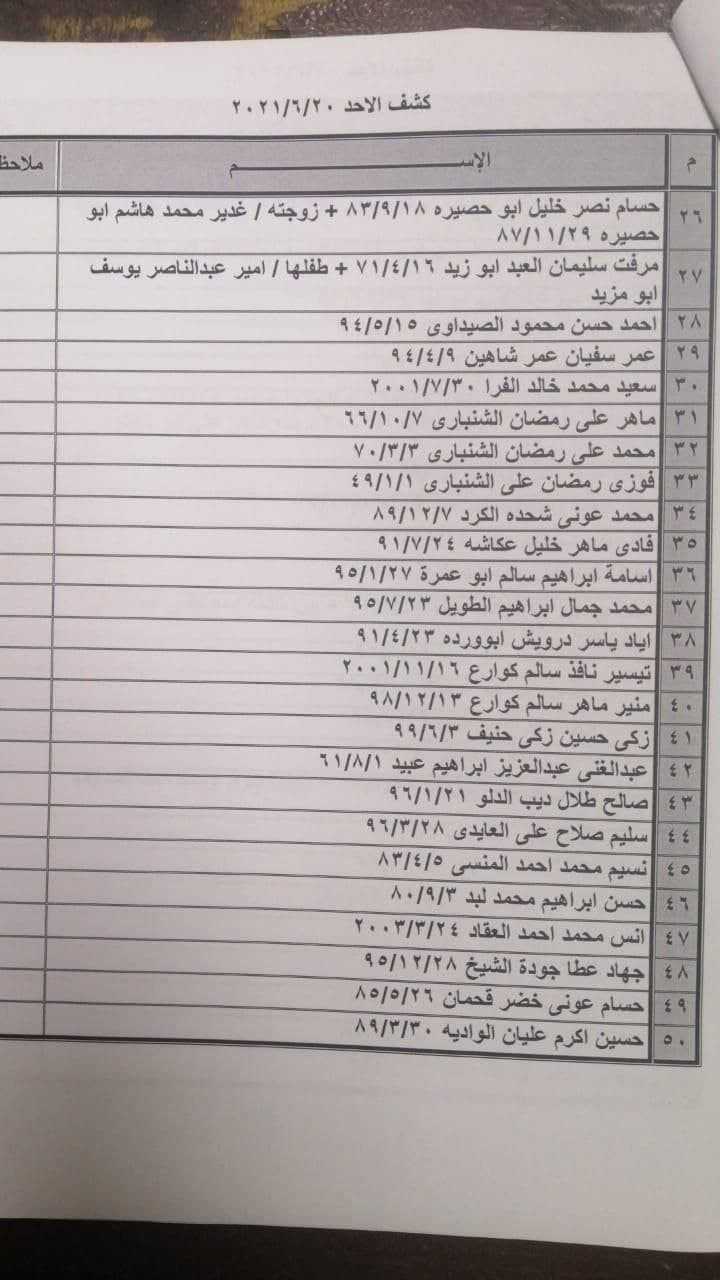 كشف الاحد ٢٠٢١/٦/٢٠
م الإســـــــــــــم ملاحظ
٢٦ حسام نصر خليل ابو حصيره ٨٣/٩/١٨ + زوجته / غدير محمد هاشم ابو
حصيره ٨٧/١١/٢٩
٢٧ مرفت سليمان العبد ابو زيد ٧١/٤/١٦ + طفلها / امير عبدالناصر يوسف
ابو مزيد
٢٨ احمد حسن محمود الصيداوى ٩٤/٥/١٥
٢٩ عمر سفيان عمر شاهين ٩٤/٤/٩
٣٠ سعيد محمد خالد الفرا ٢٠٠١/٧/٣٠
٣١ ماهر على رمضان الشنبارى ٦٦/١٠/٧
٣٢ محمد على رمضان الشنبارى ٧٠/٣/٣
٣٣ فوزى رمضان على الشنبارى ٤٩/١/١
٣٤ محمد عونى شحده الكرد ٨٩/١٢/٧
٣٥ فادى ماهر خليل عكاشه ٩١/٧/٢٤
٣٦ اسامة ابراهيم سالم ابو عمرة ٩٥/١/٢٧
٣٧ محمد جمال ابراهيم الطويل ٩٥/٧/٢٣
٣٨ اياد ياسر درويش ابوورده ٩١/٤/٢٣
٣٩ تيسير نافذ سالم كوارع ٢٠٠١/١١/١٦
٤٠ منير ماهر سالم كوارع ٩٨/١٢/١٣
٤١ زكى حسين زكى حنيف ٩٩/٦/٣
٤٢ عبدالغنى عبدالعزيز ابراهيم عبيد ٦١/٨/١
٤٣ صالح طلال ديب الدلو ٩٦/١/٢١
٤٤ سليم صلاح على العايدى ٩٦/٣/٢٨
٤٥ نسيم محمد احمد المنسى ٨٣/٤/٥
٤٦ حسن ابراهيم محمد لبد ٨٠/٩/٣
٤٧ انس محمد احمد العقاد ٢٠٠٣/٣/٢٤
٤٨ جهاد عطا جودة الشيخ ٩٥/١٢/٢٨
٤٩ حسام عونى خضر قحمان ٨٥/٥/٢٦
٥٠ حسين اكرم عليان الواديه ٨٩/٣/٣٠